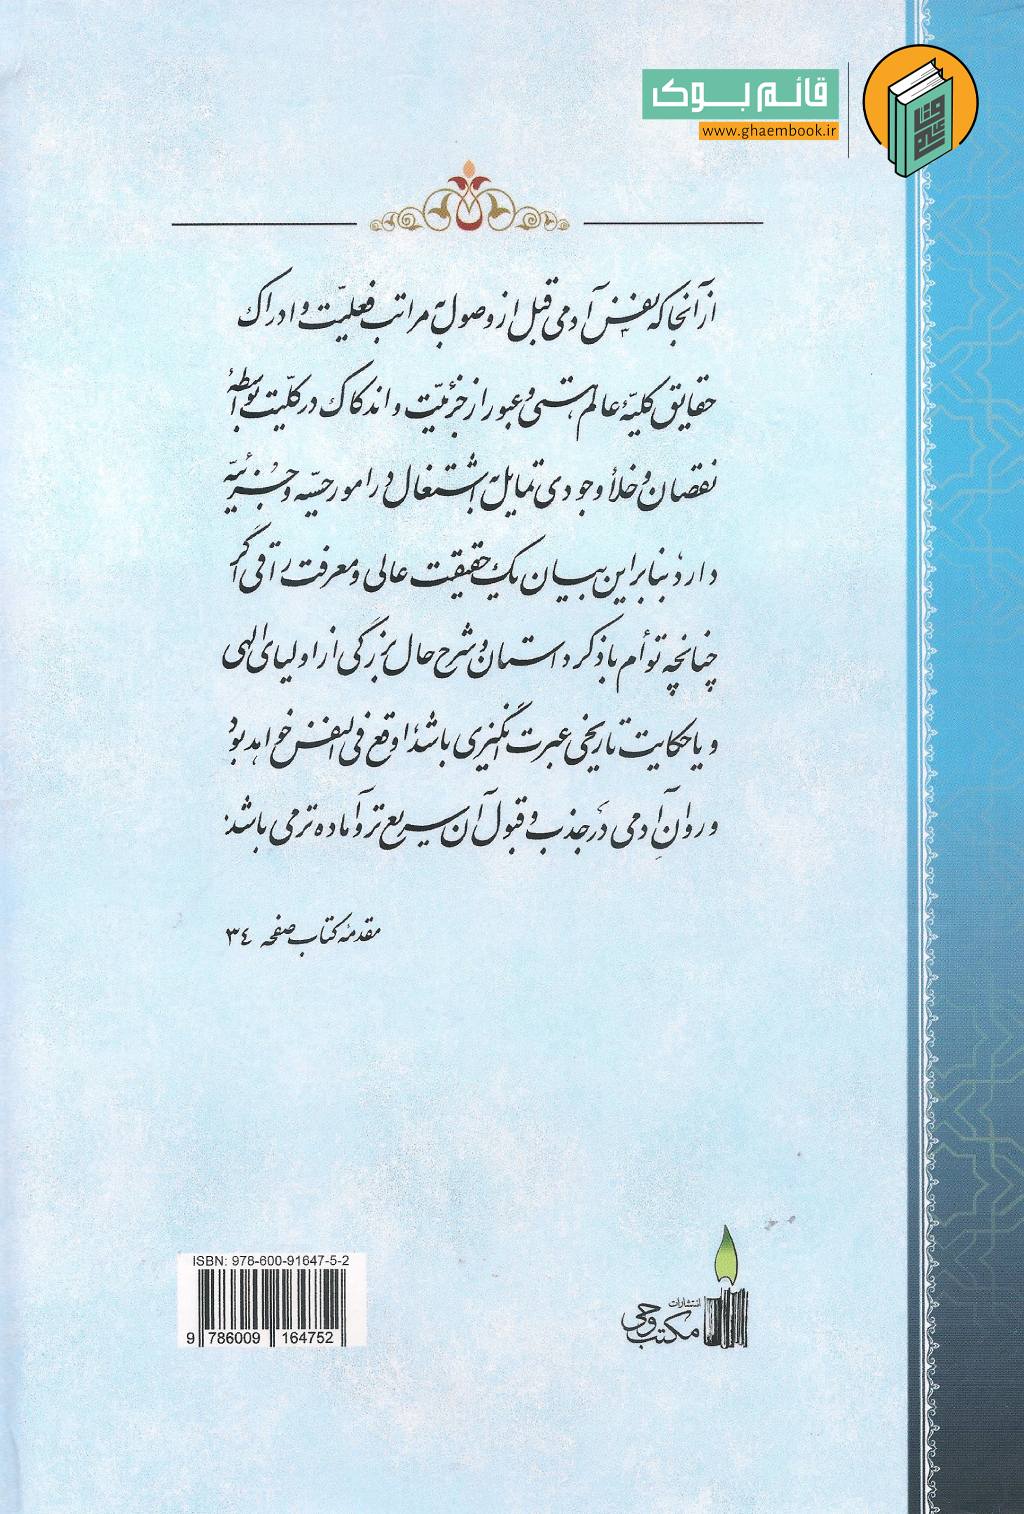 قائم بوک
www.ghaembook.ir
از آنجا که نفس آدمی قبل از وصول به مراتب فعلیّت و ادراک
حقایق کلیهٔ عالم هستی و عبور از جزئیّت و اندکاک در کلّیت بواسطهٔ
نقصان و خلأ وجودی تمایل به اشتغال در امور حسّیه و جزئیّه
دارد، بنابراین بیان یک حقیقت عالی و معرفت راقی اگر
چنانچه توأم با ذکر داستان و شرح حال بزرگی از اولیای الهی
و یا حکایت تاریخی عبرت انگیزی باشد، اوقع فی النفس خواهد بود
و روان آدمی در جذب و قبول آن سریع تر و آماده تر می باشد.
مقدمه کتاب صفحه ٣٤
ISBN: 978-600-91647-5-2
9 786009 164752
انتشارات
مکتب وحی